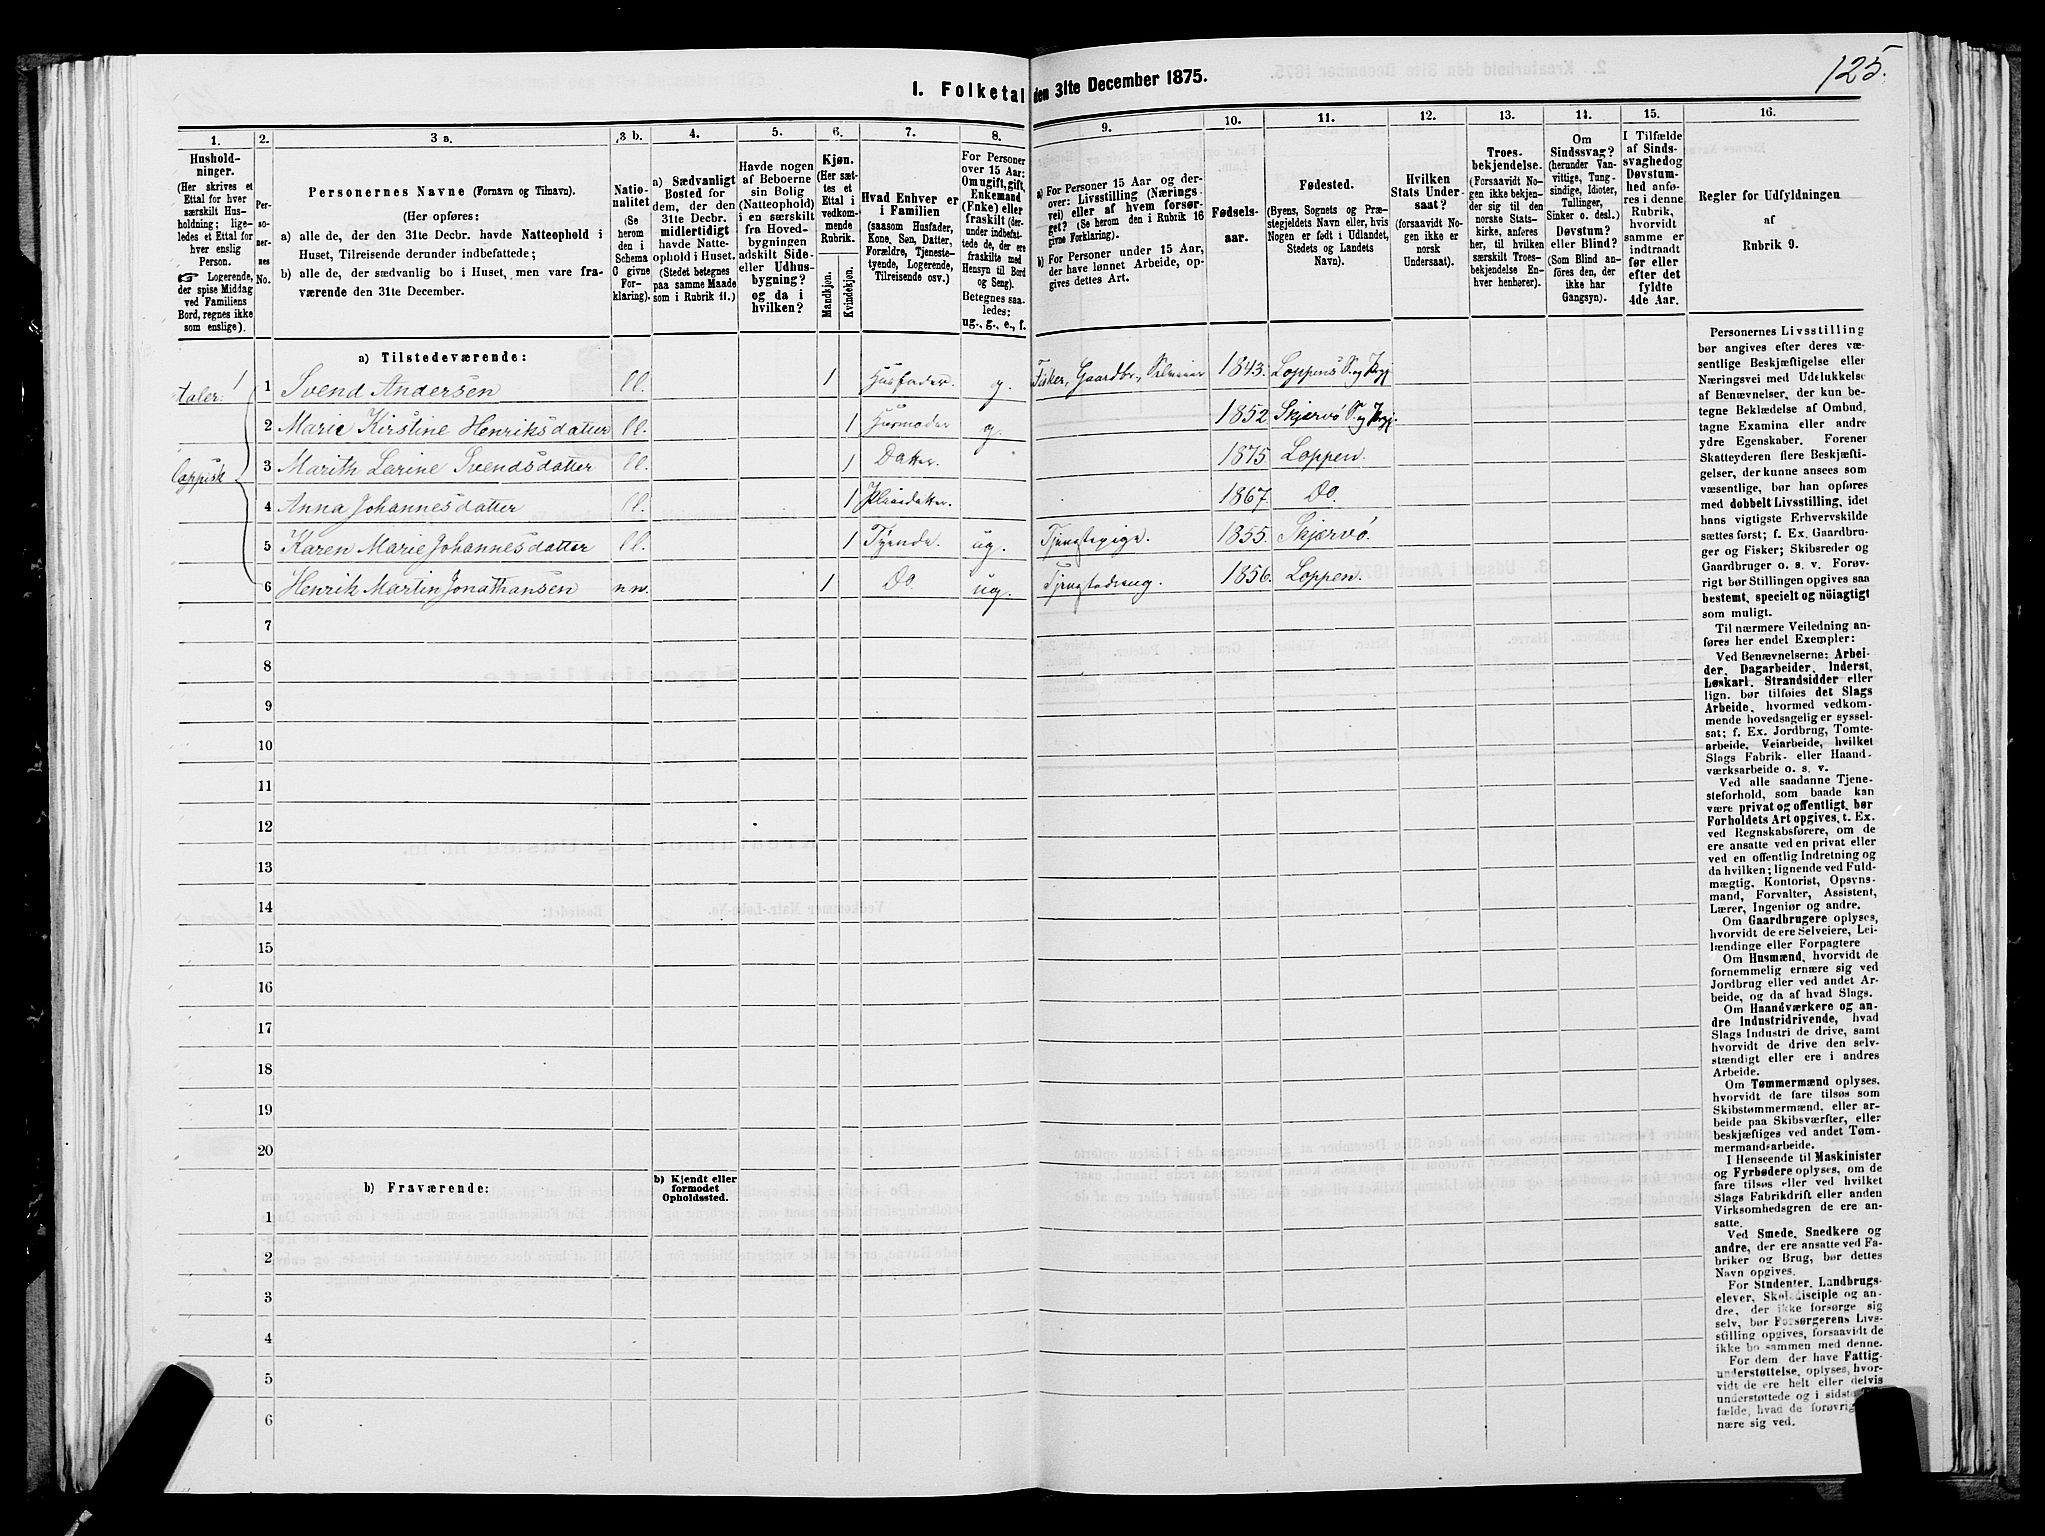 125.
I. Folketal den 31te December 1875.
1.
2.
3 a.
3 b.
4.
5.
6.
7.
8.
9.
10.
11.
12.
13.
14.
15.
16.
Hushold-
ninger.
(Her skrives et
Ettal for hver
særskilt Hus-
holdning; lige-
ledes et Ettal for
hver enslig
Person.
☞ Logerende,
der spise Middag
ved Familiens
Bord, regnes ikke
som enslige).
Per-
so-
ner-
nes
No.
Personernes Navne (Fornavn og Tilnavn).
(Her opføres:
a) alle de, der den 31te Decbr. havde Natteophold i
Huset, Tilreisende derunder indbefattede;
b) alle de, der sædvanlig bo i Huset, men vare fra-
værende den 31te December.
Natio-
nalitet
(Se
herom
den i
Schema
C givne
For-
klaring).
a) Sædvanligt
Bosted for
dem, der den
31te Decbr.
midlertidigt
havde Natte-
ophold i Huset.
(Stedet betegnes
paa samme Maade
som i Rubrik 11.)
Havde nogen
af Beboerne
sin Bolig
(Natteophold)
i en særskilt
fra Hoved-
bygningen
adskilt Side-
eller Udhus-
bygning?
og da i
hvilken?
Kjøn.
(Her sæt-
tes et
Ettal i
vedkom-
mende
Rubrik.
Mandkjøn.
Kvindekjøn.
Hvad Enhver er
i Familien
(saasom Husfader,
Kone, Søn, Datter,
Forældre, Tjeneste-
tyende, Logerende,
Tilreisende osv.)
For Personer
over 15 Aar:
Om ugift, gift,
Enkemand
(Enke) eller
fraskilt (der-
under indbefat-
tede de, der ere
fraskilte med
Hensyn til Bord
og Seng).
Betegnes saa-
ledes:
ug., g., e., f.
a) For Personer 15 Aar og der-
over: Livsstilling (Nærings-
vei) eller af hvem forsør-
get? (Se herom den i Rubrik 16
givne Forklaring).
b) For Personer under 15 Aar,
der have lønnet Arbeide, op-
gives dettes Art.
Fødsels-
aar.
Fødested.
(Byens, Sognets og Præ-
stegjeldets Navn eller, hvis
Nogen er født i Udlandet,
Stedets og Landets
Navn).
Hvilken
Stats Under-
saat?
(forsaavidt No-
gen ikke er
norsk
Undersaat).
Troes-
bekjendelse.
(Forsaavidt No-
gen ikke bekjen-
der sig til den
norske Stats-
kirke, anføres
her, til hvilken
særskilt Troes-
bekjendelse En-
hver henhører).
Om
Sindssvag?
(herunder Van-
vittige, Tung-
sindige, Idioter,
Tullinger,
Sinker o. desl.)
Døvstum?
eller Blind?
(Som Blind an-
føres den, der
ikke har
Gangsyn).
I Tilfælde
af Sinds-
svaghed og
Døvstum-
hed anfø-
res i denne
Rubrik,
hvorvidt
samme er
indtraadt
før eller
efter det
fyldte
4de Aar.
Regler for Udfyldningen
af
Rubrik 9.
a) Tilstedeværende:
Taler:
Lappisk
1
1 Svend Andersen ll. 1 Husfader. g. Fisker, Gaardbr., Selveier 1843. Loppens S. og Prgj.
2 Marie Kirstine Henriksdatter ll. 1 Husmoder g. 1852 Skjervö S. og Prgj.
3 Marith Larine Svendsdatter ll. 1 Datter. 1875 Loppen.
4 Anna Johannesdatter ll. 1 Pleiedatter. 1867. Do.
5 Karen Marie Johannesdatter ll. 1 Tyende. ug. Tjenestepige. 1855. Skjervö.
6 Henrik Martin Jonathansen n.n. 1 Do. ug. Tjenestedreng. 1856. Loppen.
7
8
9
10
11
12
13
14
15
16
17
18
19
20
b) Fraværende:
b) Kjendt eller
formodet
Opholdssted.
1
2
3
4
5
6
Personernes Livsstilling
bør angives efter deres væ-
sentlige Beskjæftigelse eller
Næringsvei med Udelukkelse
af Benævnelser, der kun be-
tegne Beklædelse af Ombud,
tagne Examina eller andre
ydre Egenskaber. Forener
Skatteyderen flere Beskjæfti-
gelser, der kunne ansees som
væsentlige, bør han opføres
med dobbelt Livsstilling, idet
hans vigtigste Erhvervskilde
sættes først; f. Ex. Gaardbru-
ger og Fisker; Skibsreder og
Gaardbruger o. s. v. Forøv-
rigt bør Stillingen opgives saa
bestemt, specielt og nöiagtigt
som muligt.
Til nærmere Veiledning an-
føres her endel Exempler:
Ved Benævnelserne: Arbei-
der, Dagarbeider, Inderst,
Løskarl, Strandsidder eller
lign. bør tilføies det Slags
Arbeide, hvormed vedkom-
mende hovedsagelig er syssel-
sat; f. Ex. Jordbrug, Tomte-
arbeide, Veiarbeide, hvilket
Slags Fabrik- eller Haand-
værksarbeide o. s. v.
Ved alle saadanne Tjene-
steforhold, som baade kan
være privat og offentligt, bør
Forholdets Art opgives, t. Ex.
ved Regnskabsførere, om de
ere ansatte ved en privat eller
ved en offentlig Indretning og
da hvilken; lignende ved Fuld-
mægtig, Kontorist, Opsyns-
mand, Forvalter, Assistent,
Lærer, Ingeniør og andre.
Om Gaardbrugere oplyses,
hvorvidt de ere Selveiere, Lei-
lændinge eller Forpagtere
Om Husmænd, hvorvidt de
fornemmelig ernære sig ved
Jordbrug eller ved andet Ar-
beide, og da af hvad Slags.
Om Haandværkere og an-
dre Industridrivende, hvad
Slags Industri de drive, samt
hvorvidt de drive den selv-
stændigt eller ere i andres
Arbeide.
Om Tømmermænd oplyses,
hvorvidt de fare tilsøs som
Skibstømmermænd, eller ar-
beide paa Skibsværfter, eller
beskjæftiges ved andet Tøm-
mermandsarbeide.
I Henseende til Maskinister
og Fyrbødere oplyses, om de
fare tilsøs eller ved hvilket
Slags Fabrikdrift eller anden
Virksomhedsgren de ere an-
satte.
Ved Smede, Snedkere og
andre, der ere ansatte ved Fa-
briker og Brug, bør dettes
Navn opgives.
For Studenter, Landbrugs-
elever, Skoledisciple og an-
dre, der ikke forsørge sig
selv, bør Forsørgerens Livs-
stilling opgives, forsaavidt de
ikke bo sammen med denne.
For dem, der have Fattig-
understøttelse, oplyses, hvor-
vidt de ere helt eller delvis
understøttede og i sidste
fælde, hvad de forøvrig
nære sig ved.